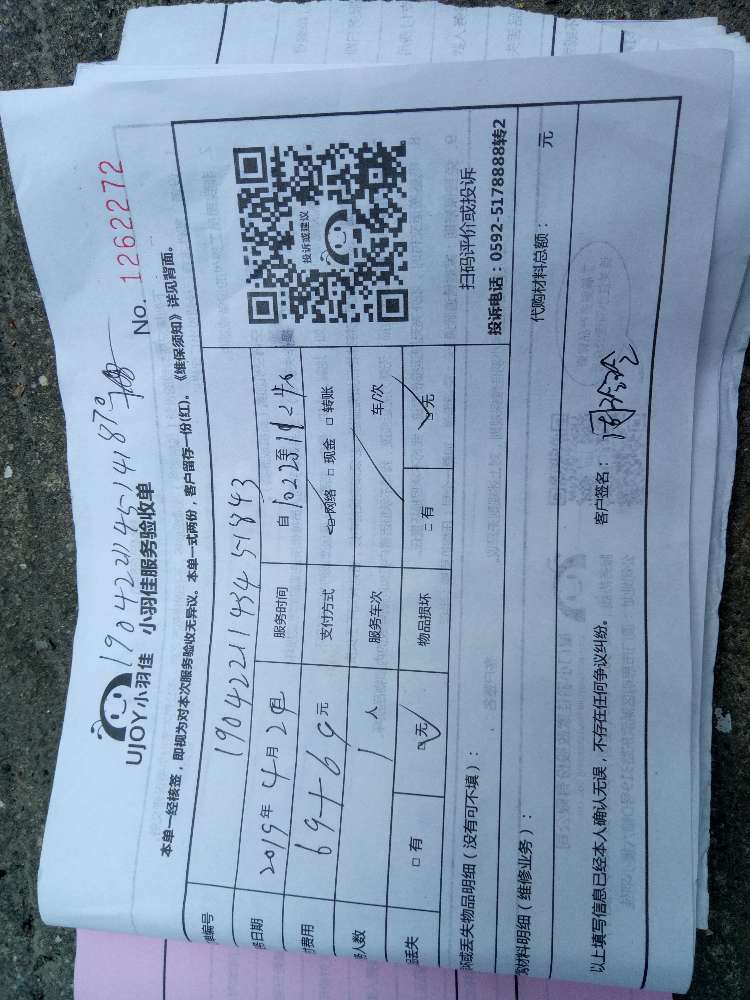 190422114514187
UJOY小羽佳 小羽佳服务验收单
No. 1262272
本单一经核签，即视为对本次服务验收无异议。本单一式两份，客户留存一份(红)。《维保须知》详见背面。
编号 19042211434 51843
日期 2019年 4月 2 日 服务时间 自 10:22 至 12:46
费用 69+69元 支付方式 网络 □现金 □转账
人数 1 人 服务车次 车/次
丢失 □有 无 物品损坏 □有 无
投诉或建议
扫码评价或投诉
投诉电话：0592-5178888转2
或丢失物品明细（没有可不填）：
材料明细（维修业务）： 代购材料总额： 元
以上填写信息已经本人确认无误，不存在任何争议纠纷。 客户签名：